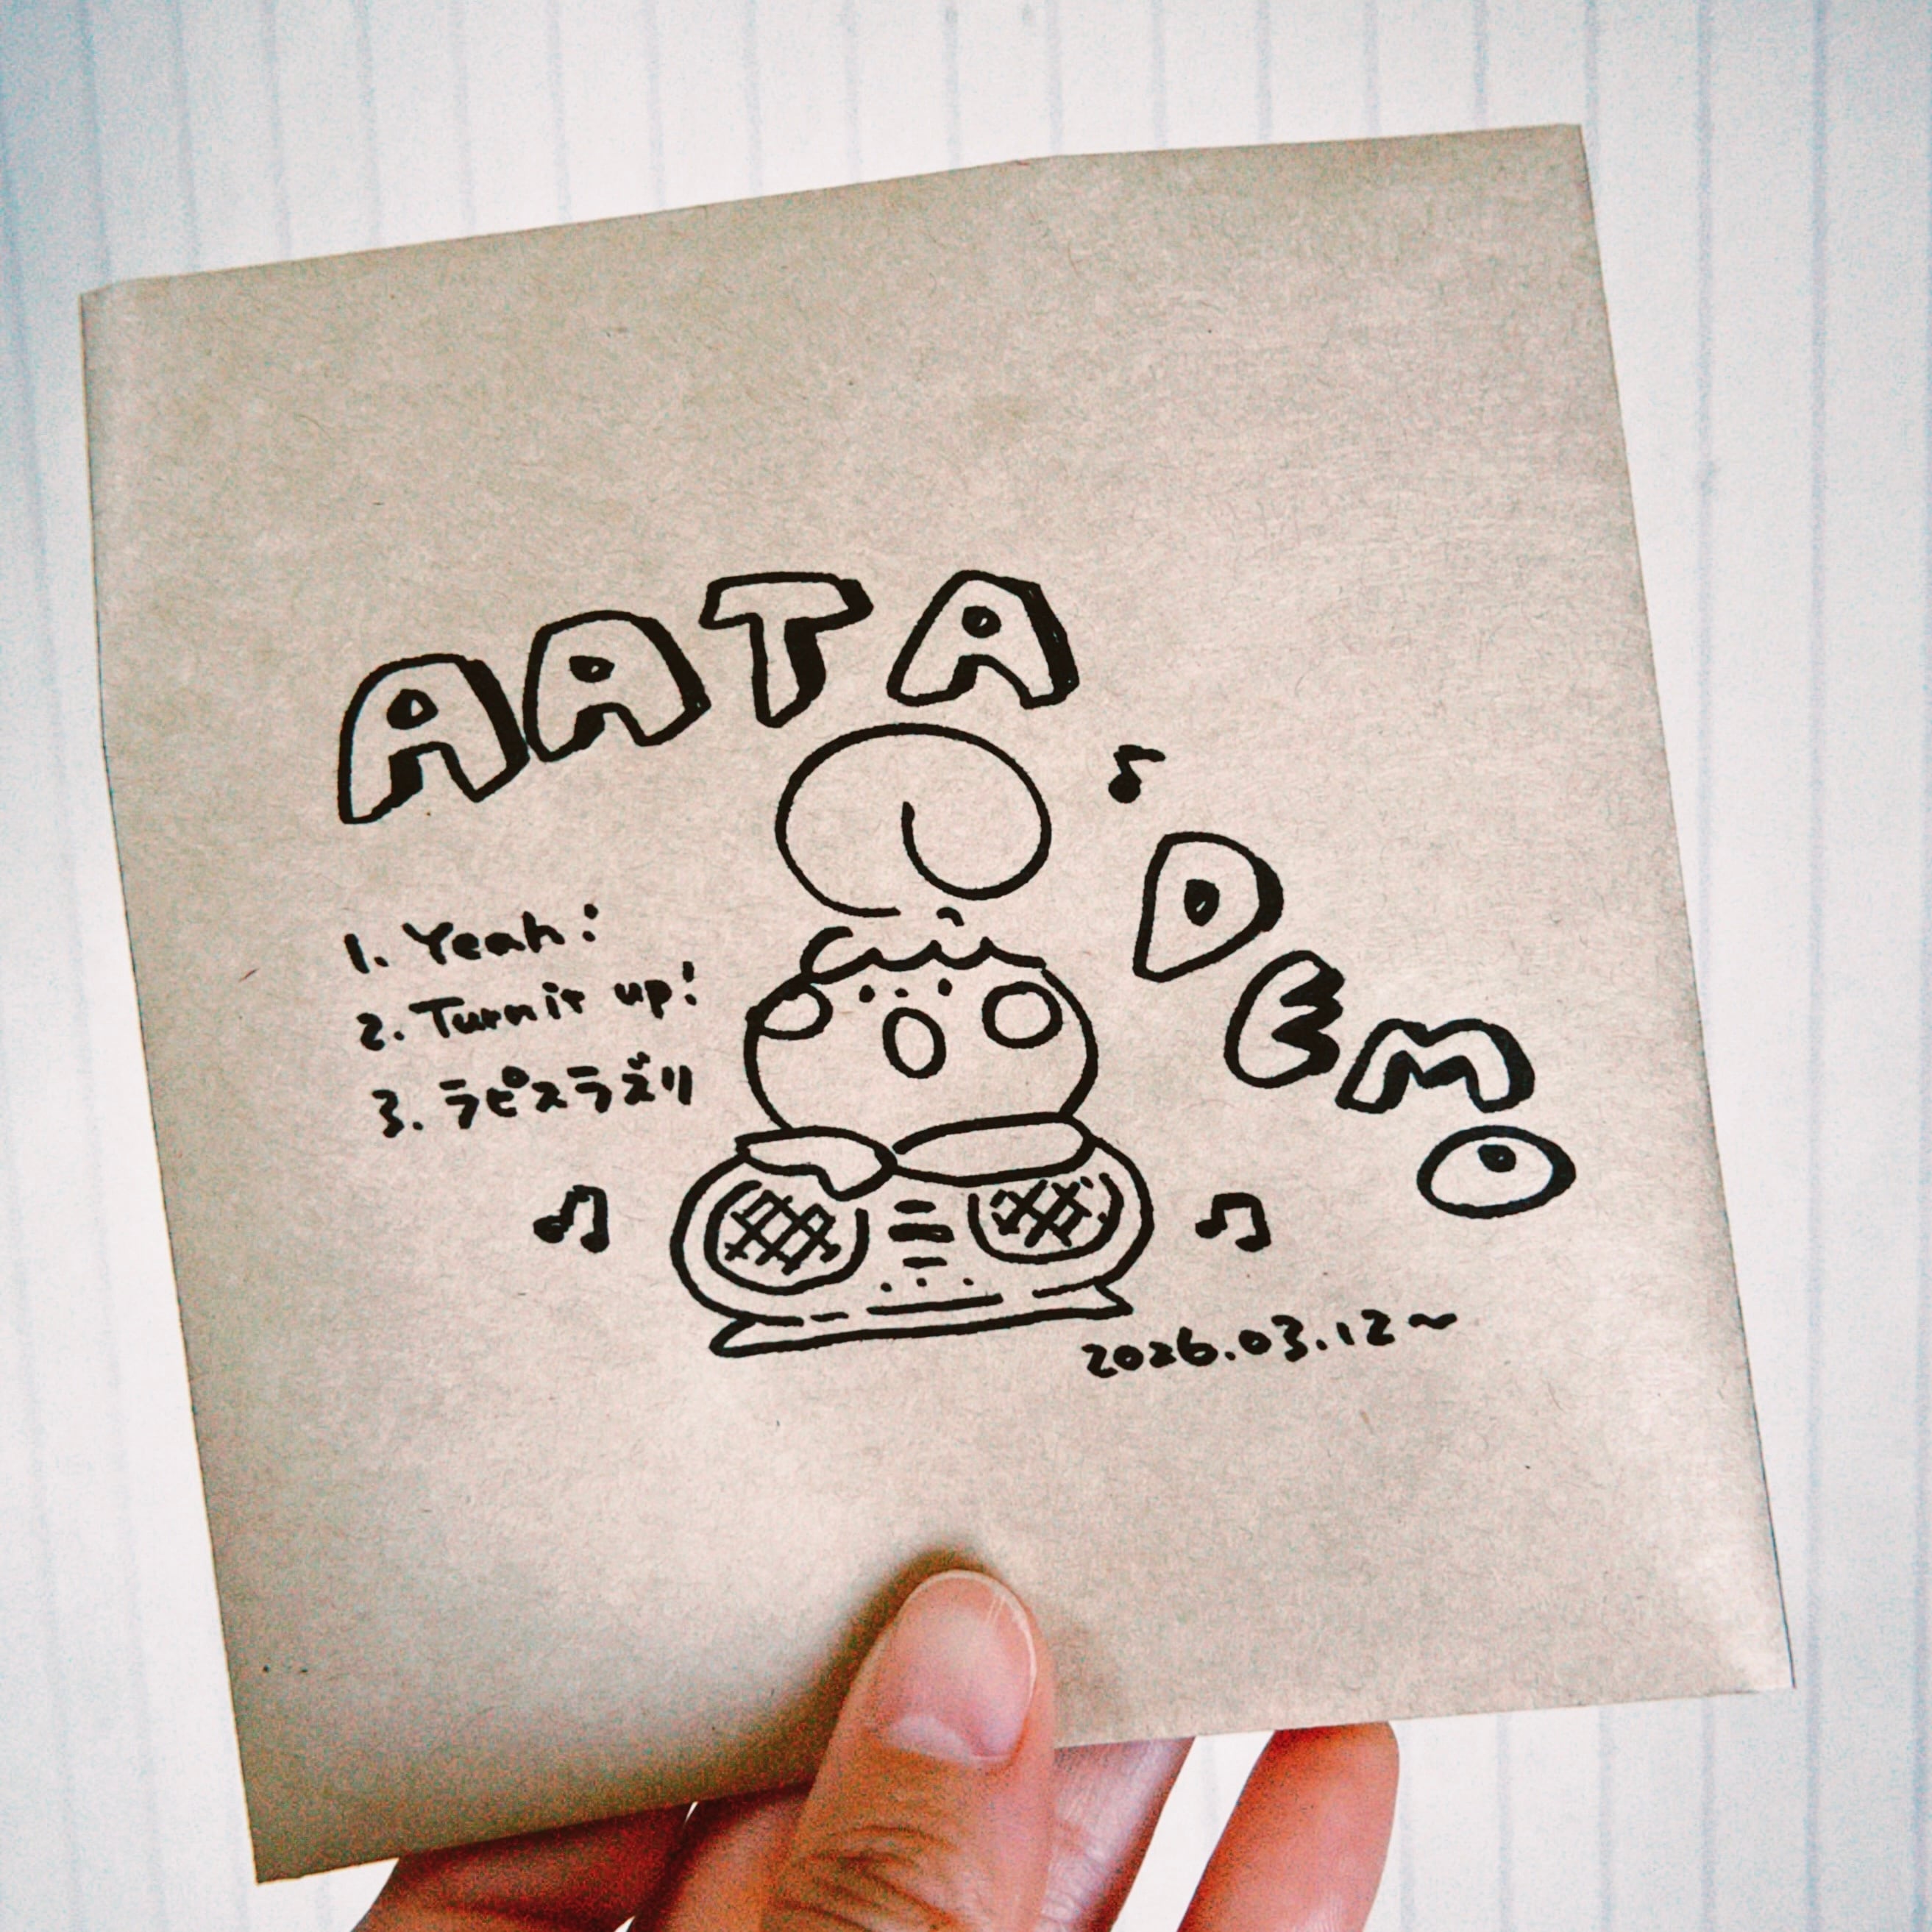 AATA
DEMO
1. Yeah!
2. Turn it up!
3. ラピスラズリ
2026.03.12～